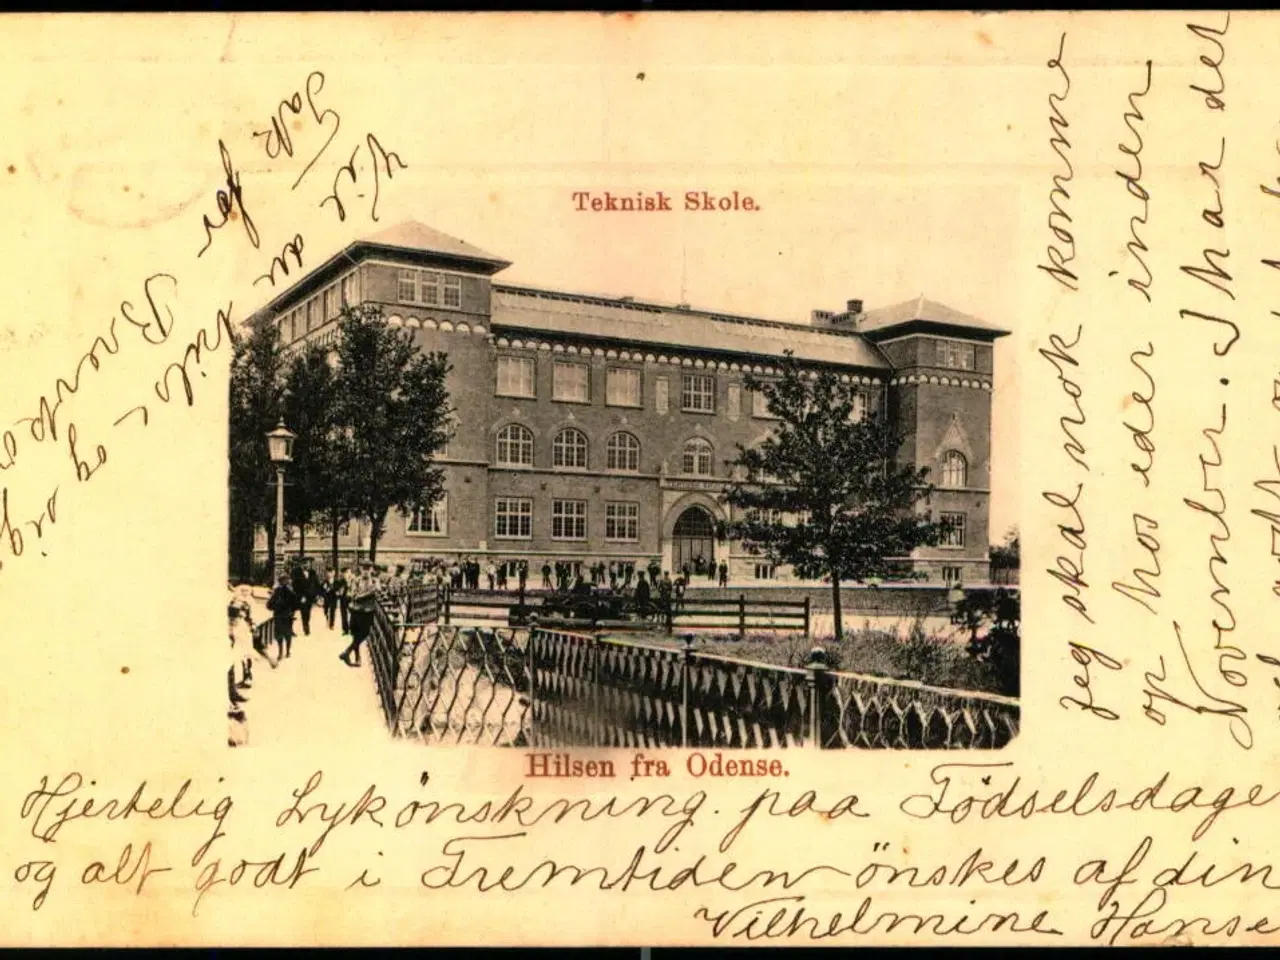 Teknisk Skole.
Hilsen fra Odense.
Hjertelig Lykönskning. paa Födselsdage
og alt godt i Fremtiden önskes af din
Vilhelmine Hanse
Jeg skal nok komme
op hos eder inden
November. I har det
Tak for Brevk
Vil du hils
og